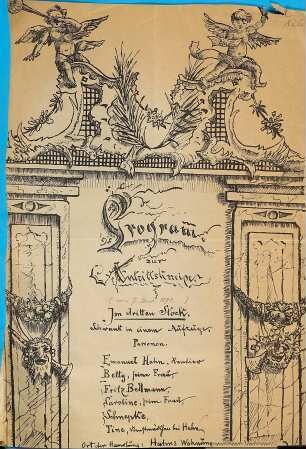 Program
zur
Antrittskneipe
Im dritten Stock.
Schwank in einem Aufzuge
Personen.
Emanuel Hahn, Rentier
Betty, seine Frau
Fritz Bellmann
Caroline, seine Frau
Schnepke,
Tine, bei Hahn.
Ort der Handlung: Hahns Wohnung